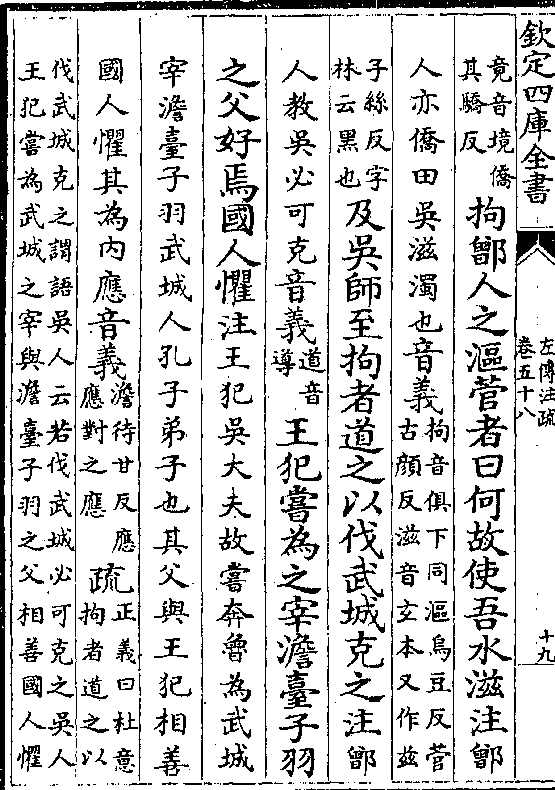 欽定四庫全書
左傳注疏
卷五十八
十九
竟音境僑
其驕反
拘鄫人之漚菅者曰何故使吾水滋注鄫
人亦僑田吳滋濁也音義
拘音俱下同漚烏豆反菅
古顔反滋音玄本又作兹
子絲反字
林云黑也
及吳師至拘者道之以伐武城克之注鄫
人教吳必可克音義
道音
導
王犯嘗為之宰澹臺子羽
之父好焉國人懼注王犯吳大夫故嘗奔魯為武城
宰澹臺子羽武城人孔子弟子也其父與王犯相善
國人懼其為内應音義
澹待甘反應
應對之應
疏
正義曰杜意
拘者道之以
伐武城克之謂語吳人云若伐武城必可克之吳人
王犯嘗為武城之宰與澹臺子羽之父相善國人懼